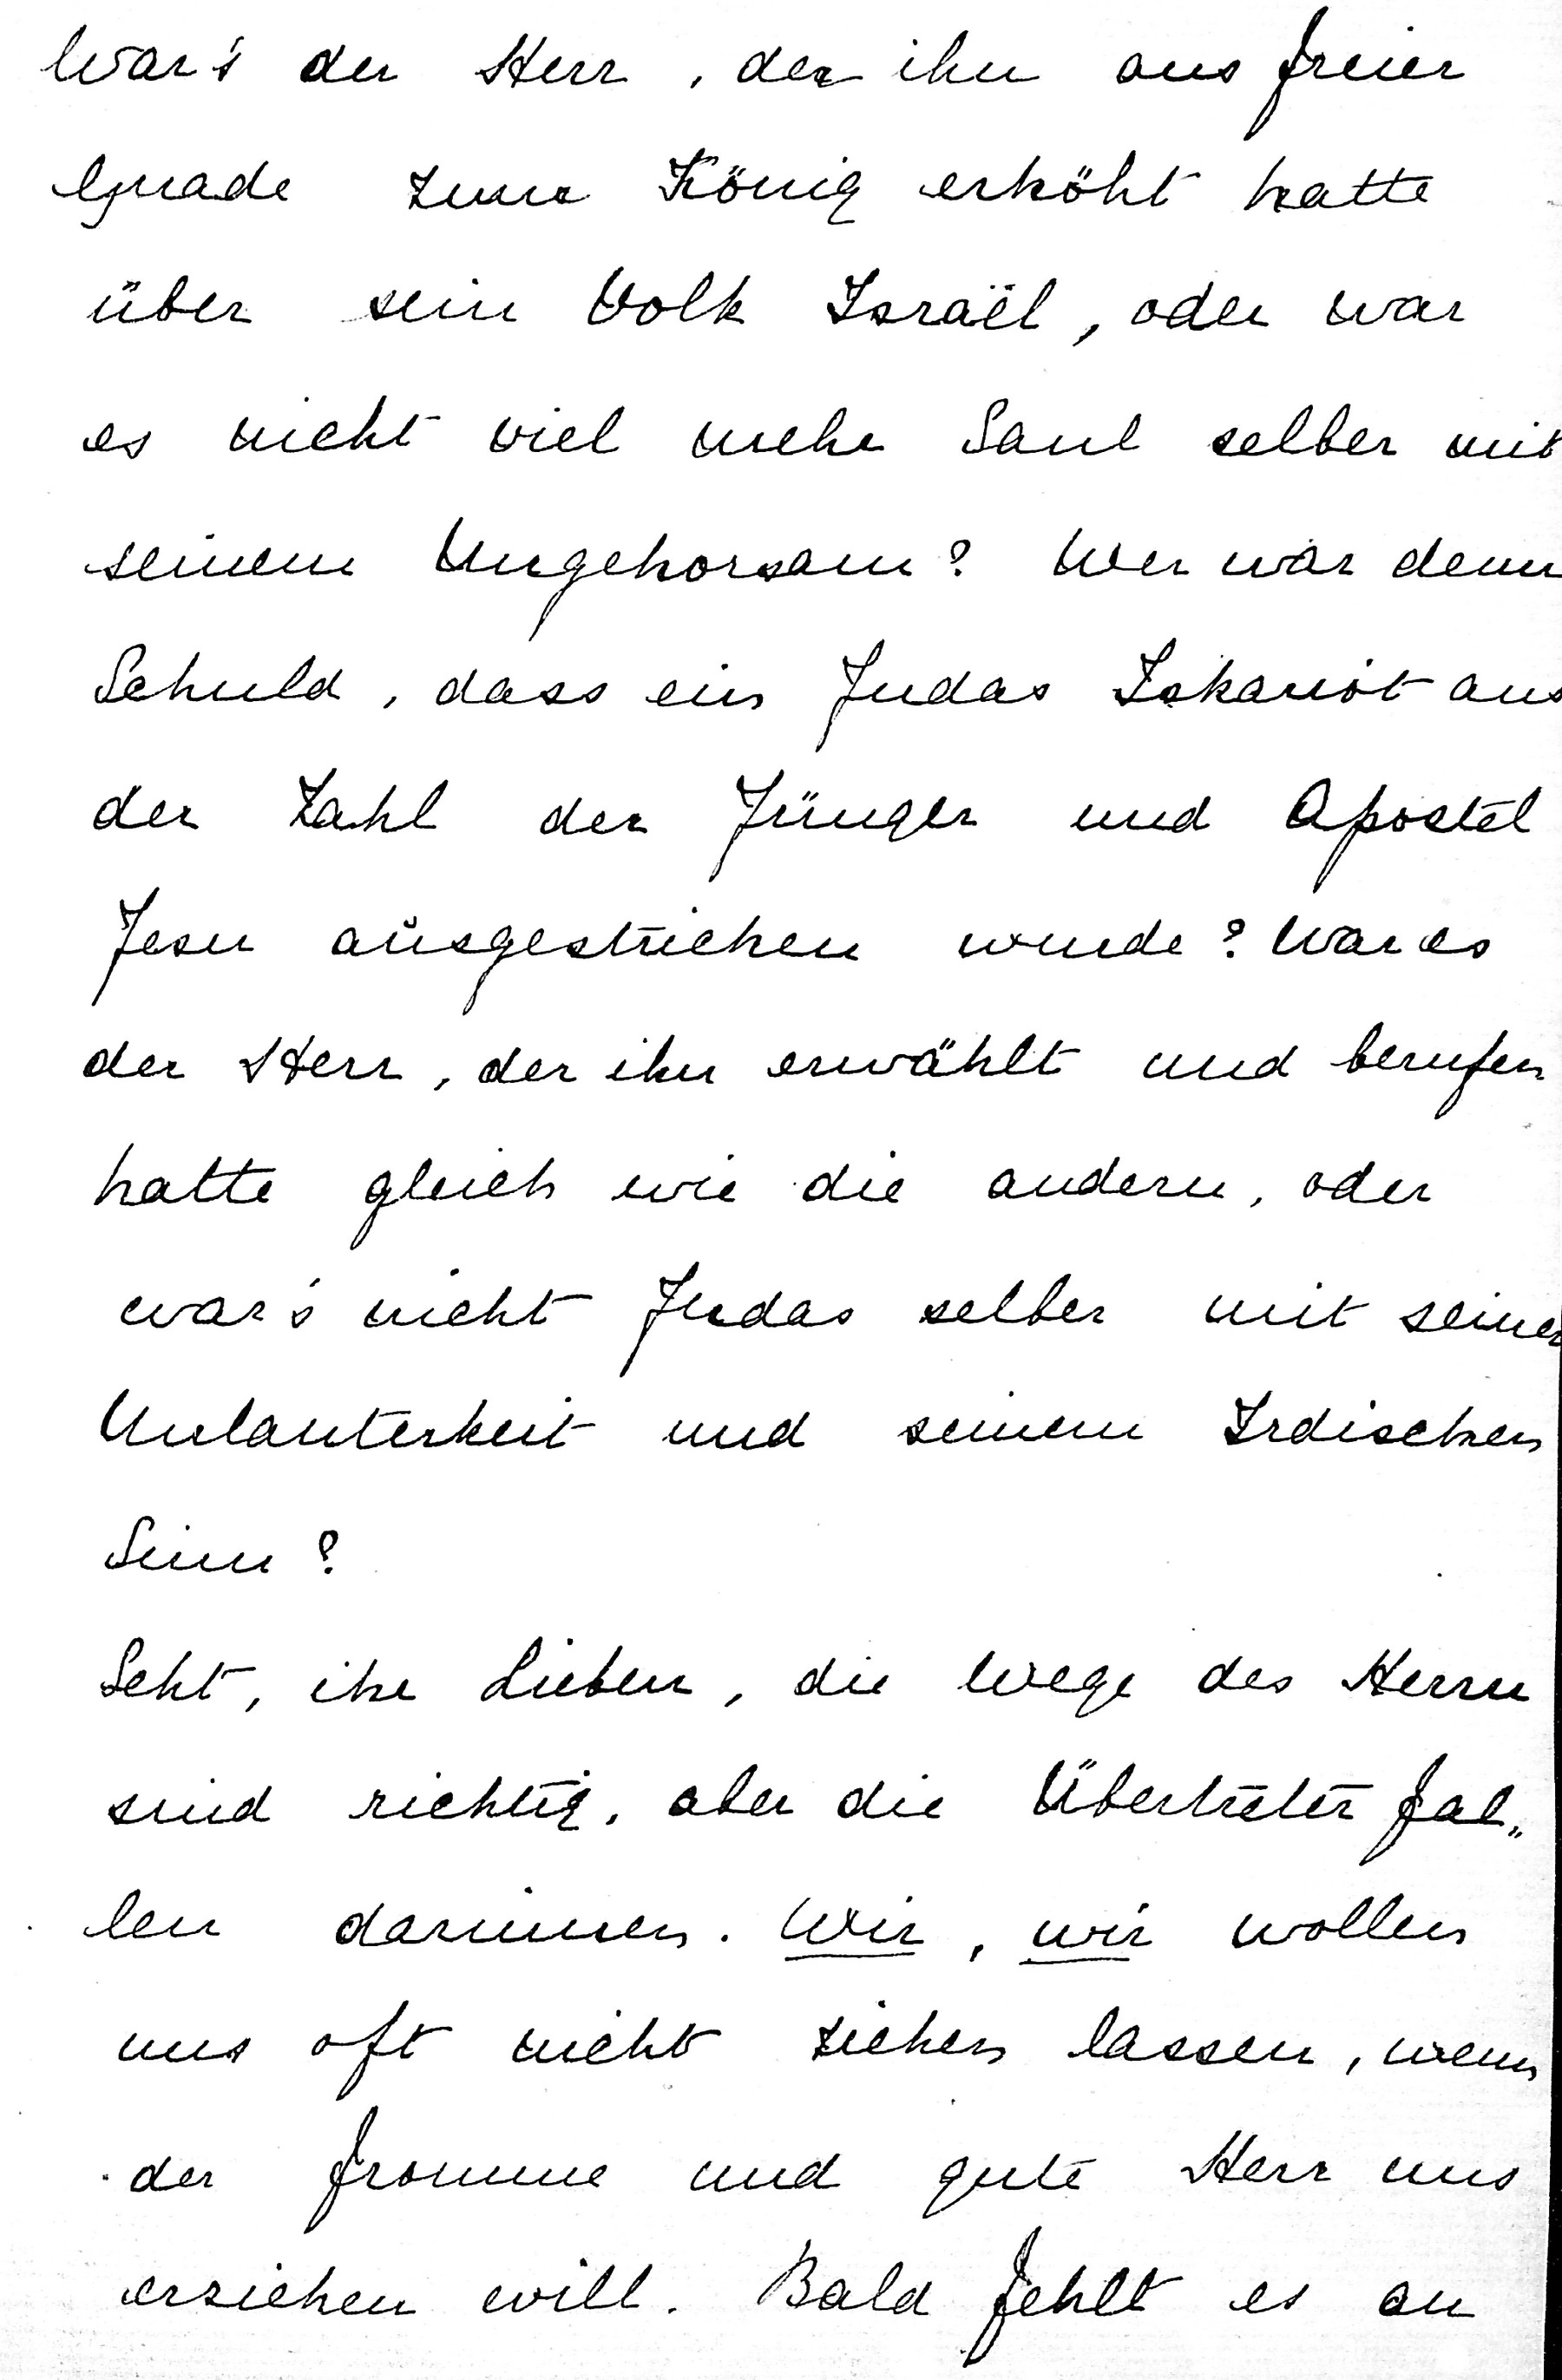 War's der Herr, der ihn aus freier
Gnade zum König erhöht hatte
über sein Volk Israël, oder war
es nicht viel mehr Saul selber mit
seinem Ungehorsam? Wer war denn
Schuld, dass ein Judas Iskariot aus
der Zahl der Jünger und Apostel
Jesu ausgestrichen wurde? War es
der Herr, der ihn erwählt und berufen
hatte gleich wie die andern, oder
war's nicht Judas selber mit seiner
Unlauterkeit und seinem Irdischen
Sinn?
Seht, ihr Lieben, die Wege des Herrn
sind richtig, aber die Übertreter fal„
len darinnen. Wir, wir wollen
uns oft nicht ziehen lassen, wenn
der fromme und gute Herr uns
erziehen will. Bald fehlt es an